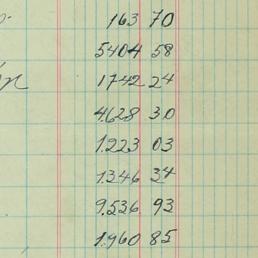 163 70
5404 58
1742 24
4.628 30
1.223 03
1.346 34
9.536 93
1.960 85